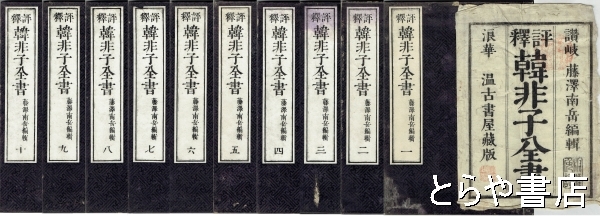 讃岐 藤澤南岳編輯
評釋 韓非子全書
浪華 温古書屋藏版
評釋 韓非子全書 藤澤南岳編輯 一
評釋 韓非子全書 藤澤南岳編輯 二
評釋 韓非子全書 藤澤南岳編輯 三
評釋 韓非子全書 藤澤南岳編輯 四
評釋 韓非子全書 藤澤南岳編輯 五
評釋 韓非子全書 藤澤南岳編輯 六
評釋 韓非子全書 藤澤南岳編輯 七
評釋 韓非子全書 藤澤南岳編輯 八
評釋 韓非子全書 藤澤南岳編輯 九
評釋 韓非子全書 藤澤南岳編輯 十
とらや書店